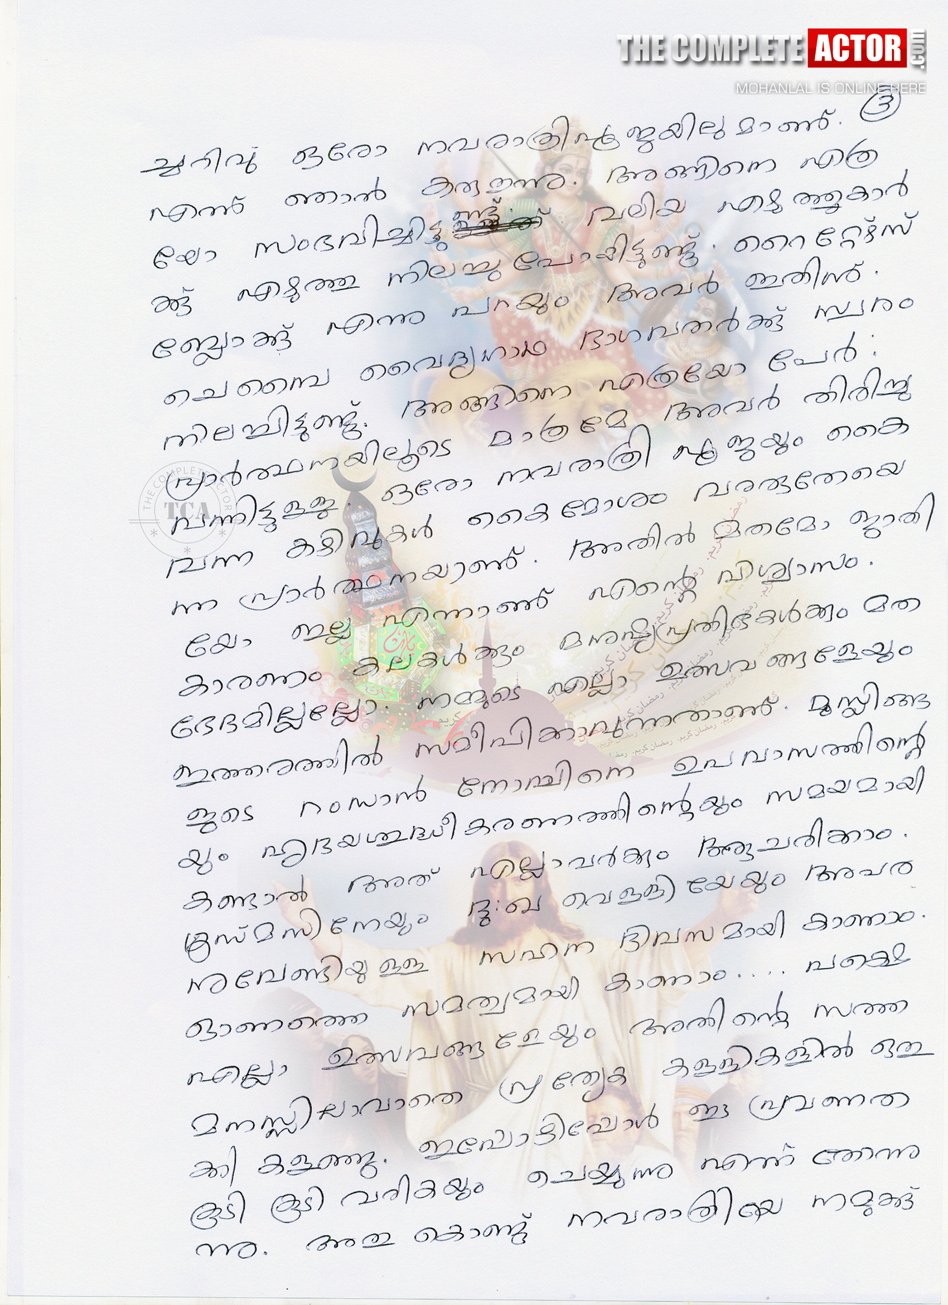 THE COMPLETE ACTOR.com
MOHANLAL IS ONLINE HERE
3
ച്ചറിവു് ഓരോ നവരാത്രിപൂജയിലുമാണ്.
എന്ന് ഞാൻ കരുതുന്നു. അങ്ങിനെ എത്ര
യോ സംഭവിച്ചിട്ടുണ്ട്. വലിയ എഴുത്തുകാർ
ക്ക് എഴുത്തു നിലച്ചുപോയിട്ടുണ്ട്. റൈറ്റേഴ്സ്
ബ്ലോക്ക് എന്നു പറയും അവർ ഇതിന്.
ചെമ്പൈ വൈദ്യനാഥ ഭാഗവതർക്ക് സ്വരം
നിലച്ചിട്ടുണ്ട്. അങ്ങിനെ എത്രയോ പേർ.
പ്രാർത്ഥനയിലൂടെ മാത്രമേ അവർ തിരിച്ചു
വന്നിട്ടുള്ളൂ. ഓരോ നവരാത്രി പൂജയും കൈ
വന്ന കഴിവുകൾ കൈമോശം വരരുതേയെ
ന്ന പ്രാർത്ഥനയാണ്. അതിൽ മതമോ ജാതി
യോ ഇല്ല എന്നാണ് എന്റെ വിശ്വാസം.
കാരണം കലകൾക്കും മനുഷ്യപ്രതിഭകൾക്കും മത
ഭേദമില്ലല്ലോ. നമ്മുടെ എല്ലാ ഉത്സവങ്ങളേയും
ഇത്തരത്തിൽ സമീപിക്കാവുന്നതാണ്. മുസ്ലിങ്ങ
ളുടെ റംസാൻ നോമ്പിനെ ഉപവാസത്തിന്റെ
യും ഹൃദയശുദ്ധീകരണത്തിന്റെയും സമയമായി
കണ്ടാൽ അത് എല്ലാവർക്കും ആചരിക്കാം.
ക്രസ്മസിനേയും ദുഃഖവെള്ളിയേയും അപര
നുവേണ്ടിയുള്ള സഹന ദിവസമായി കാണാം.
ഓണത്തെ സമത്വമായി കാണാം.... പക്ഷെ
എല്ലാ ഉത്സവങ്ങളേയും അതിന്റെ സത്ത
മനസ്സിലാവാതെ പ്രത്യേക കള്ളികളിൽ ഒതു
ക്കി കളഞ്ഞു. ഇപ്പോഴിപ്പോൾ ഈ പ്രവണത
കൂടി കൂടി വരികയും ചെയ്യുന്നു എന്ന് തോന്നു
ന്നു. അതു കൊണ്ട് നവരാത്രിയെ നമുക്ക്
THE COMPLETE ACTOR
TCA